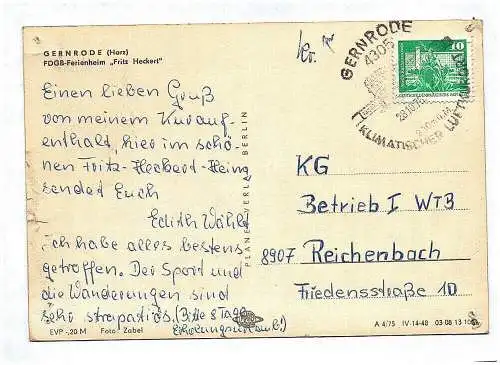 GERNRODE (Harz)
FDGB-Ferienheim „Fritz Heckert"
Einen lieben Gruß
von meinem Kurauf-
enthalt, hier im schö-
nen Fritz-Heckert-Heim
sendet Euch
Edith
ich habe alles bestens
getroffen. Der Sport und
die Wanderungen sind
sehr strapatiös. (Bitte 8 Tage
EVP -,20 M Foto: Zabel
PLANET-VERLAG BERLIN
GERNRODE
4305
KLIMATISCHER LUFTKURORT
10
KG
Betrieb I WTB
8907 Reichenbach
Friedensstraße 10
A 4/75 IV-14-48 03 08 13